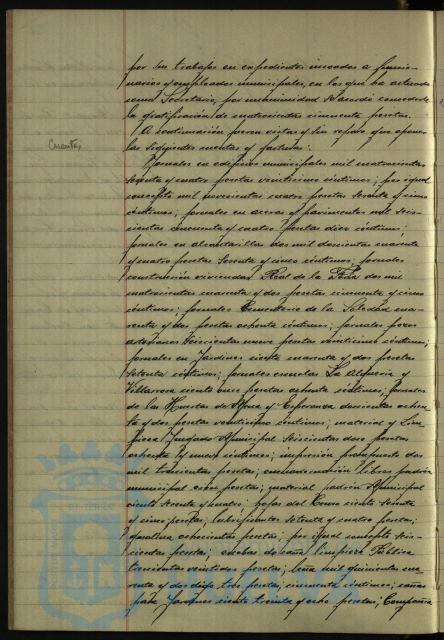 por sus trabajos en expedientes incoados a funcio-
narios y empleados municipales, en los que ha actuado
como Secretario, por unanimidad se acordó concederle
la gratificación de cuatrocientas cincuenta pesetas.
Cuentas
A continuación fueron vistas y sin reparo que oponer
las siguientes cuentas y facturas:
Jornales en edificios municipales mil cuatrocientas
setenta y cuatro pesetas veinticinco céntimos; por igual
concepto mil novecientas cuatro pesetas setenta y cinco
céntimos; jornales en aceras y pavimentos mil seis-
cientas cincuenta y cuatro pesetas diez céntimos;
jornales en alcantarillas dos mil doscientas cuarenta
y cuatro pesetas setenta y cinco céntimos; jornales
construcción viviendas Real de la Feria dos mil
cuatrocientas cuarenta y dos pesetas cincuenta y cinco
céntimos; jornales Cementerio de la Soledad cua-
renta y dos pesetas ochenta céntimos; jornales pozos
artesianos seiscientas nueve pesetas veinticinco céntimos;
jornales en Jardines ciento cuarenta y dos pesetas
setenta céntimos; jornales escuelas La Alquería y
Villarrosa ciento once pesetas ochenta céntimos; jornales
de las Huertas de Mena y Esperanza doscientas ochen-
ta y dos pesetas veinticinco céntimos; material y Lim-
pieza Juzgado Municipal seiscientas doce pesetas
ochenta y nueve céntimos; impresión presupuesto dos
mil trescientas pesetas; encuadernación libros padrón
municipal cien pesetas; material padrón Municipal
ciento setenta y cuatro; hojas del Censo ciento setenta
y cinco pesetas; lubrificantes setenta y cuatro pesetas;
gasolina ochocientas pesetas; por igual concepto seis-
cientas pesetas; escobas de caña limpieza Pública
trescientas veintidós pesetas; leña mil quinientas cua-
renta y dos pesetas cincuenta céntimos; cañas
para Jardines ciento treinta y ocho pesetas; Compañía